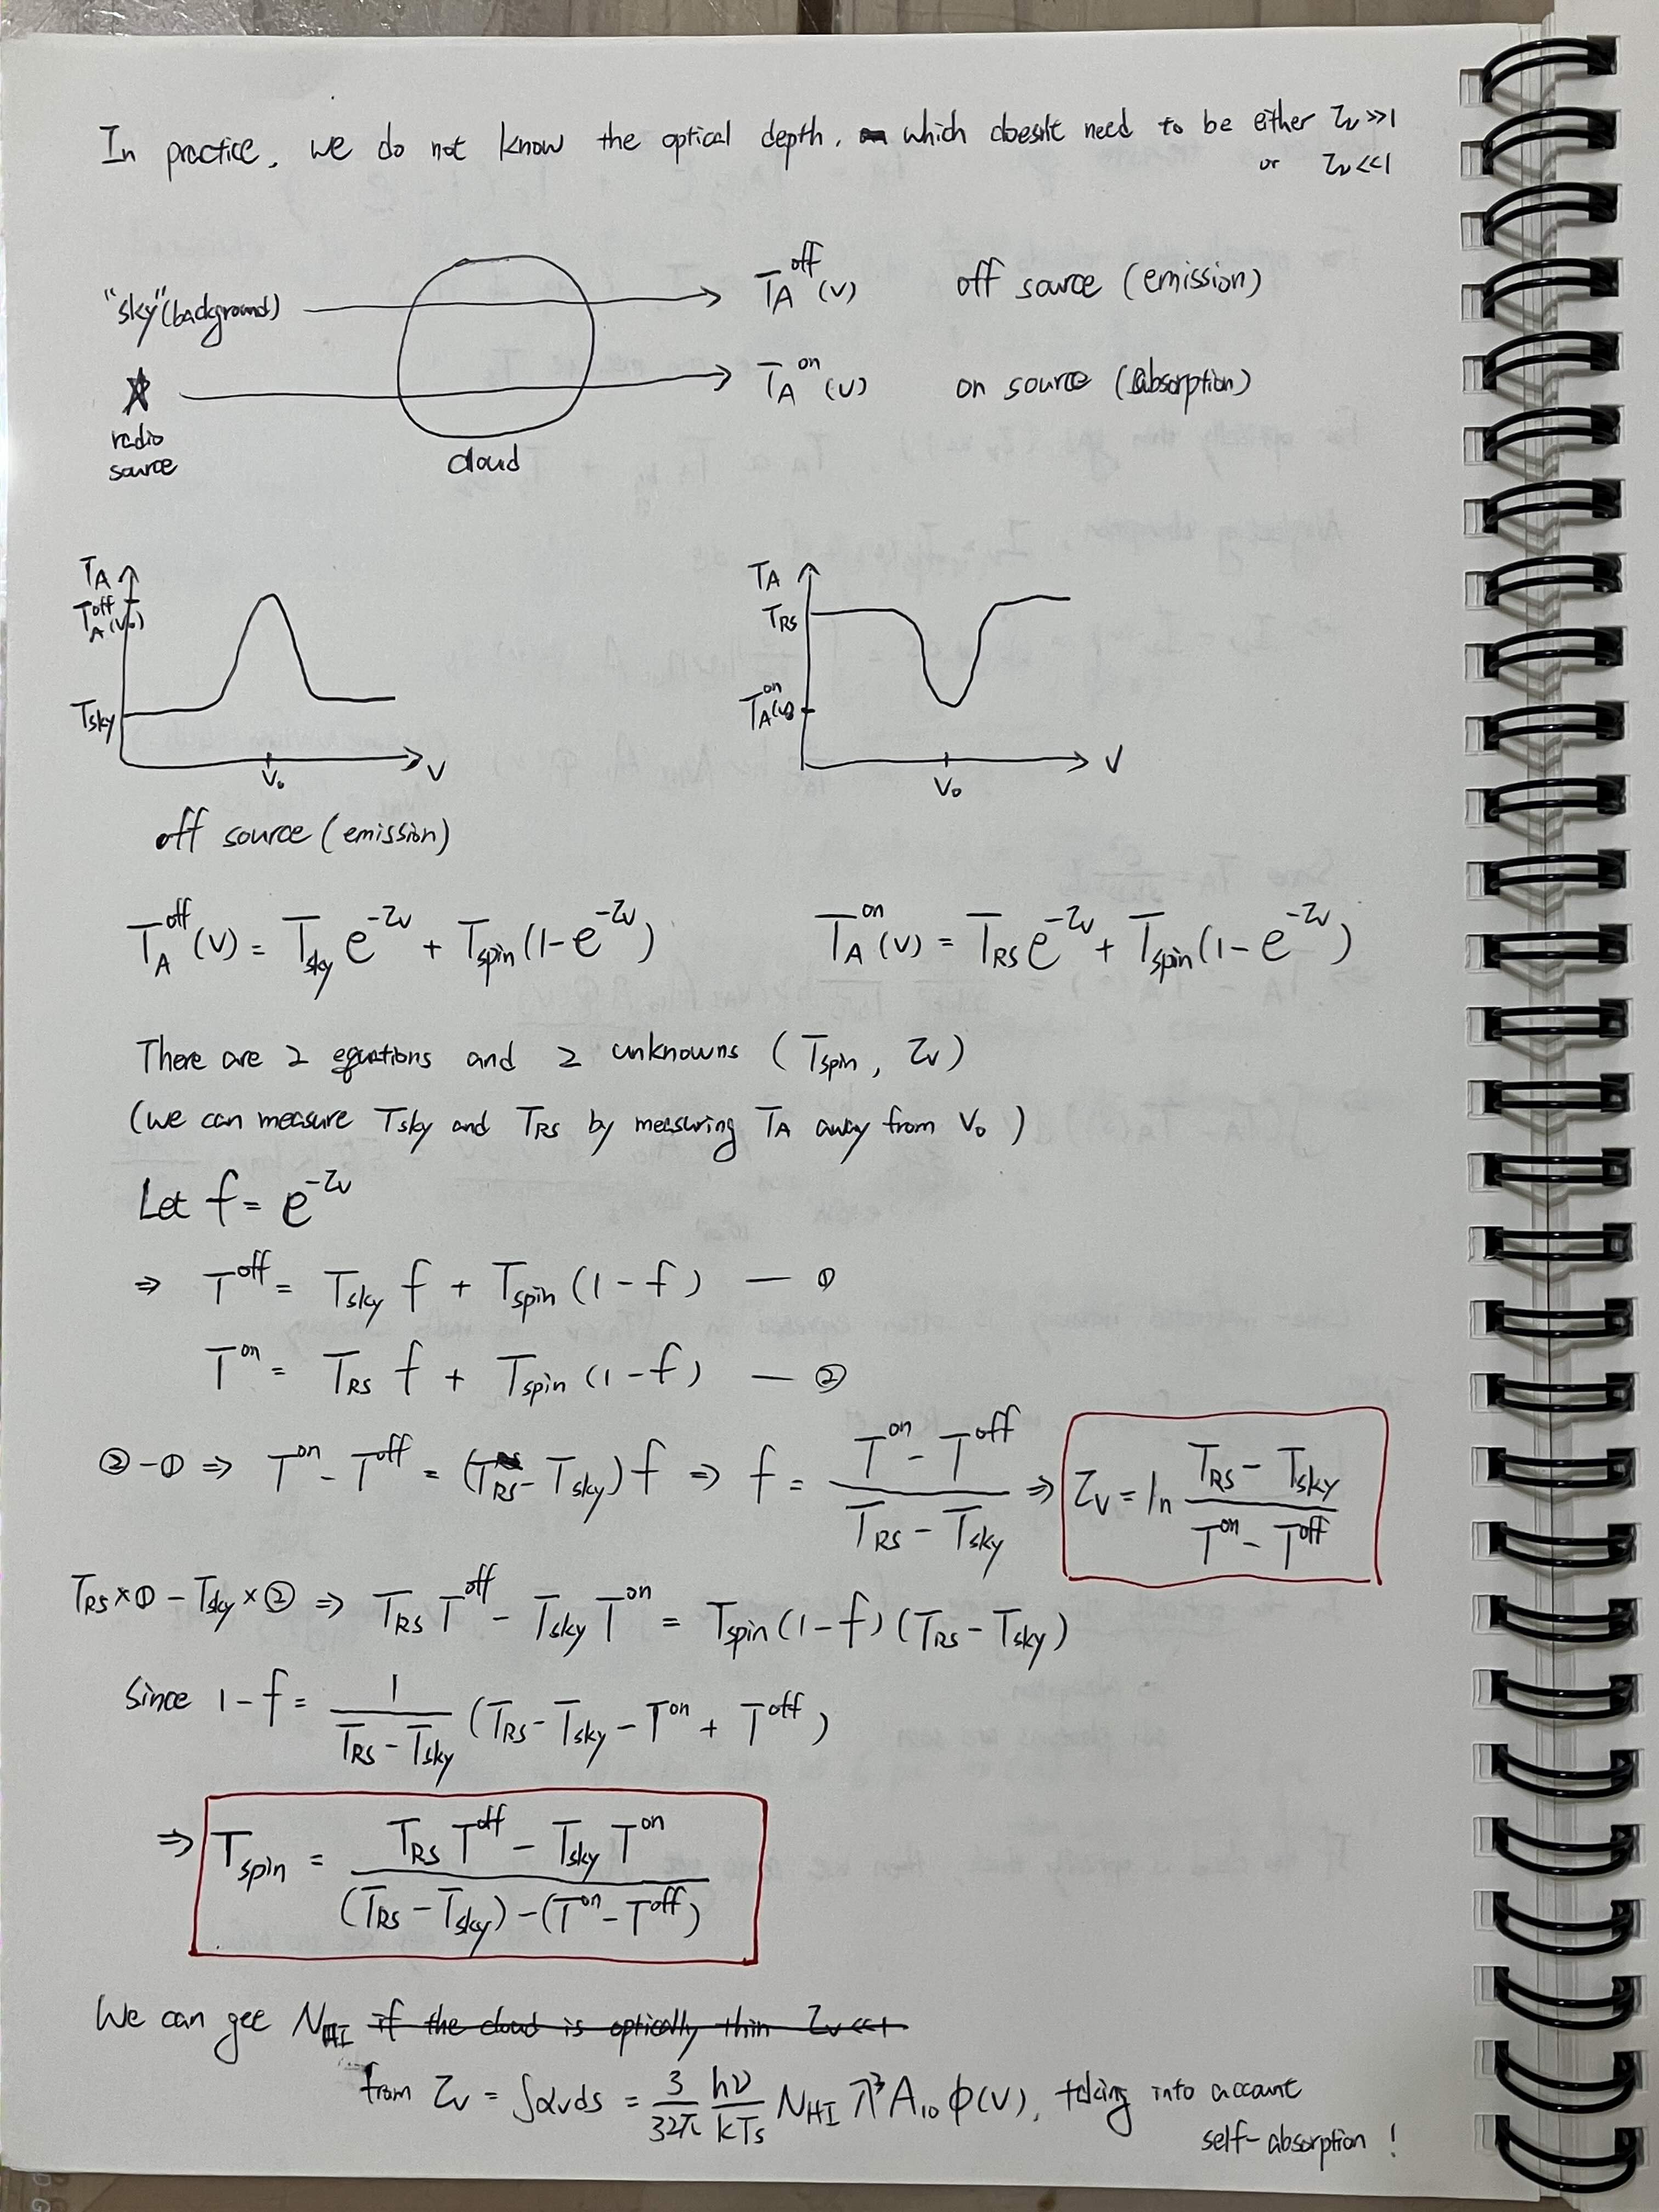 In practice, we do not know the optical depth, which doesn't need to be either τᵥ>>1
or τᵥ<<1
"sky"(background) T_A^off(v) off source (emission)
radio source T_A^on(v) on source (absorption)
cloud
T_A
T_A^off(v₀)
T_sky
v₀ v
T_A
T_RS
T_A^on(v₀)
v₀ v
off source (emission)
T_A^off(v) = T_sky e^-τᵥ + T_spin(1-e^-τᵥ) T_A^on(v) = T_RS e^-τᵥ + T_spin(1-e^-τᵥ)
There are 2 equations and 2 unknowns (T_spin, τᵥ)
(we can measure T_sky and T_RS by measuring T_A away from v₀)
Let f = e^-τᵥ
⇒ T^off = T_sky f + T_spin (1-f) — ①
T^on = T_RS f + T_spin (1-f) — ②
②-① ⇒ T^on - T^off = (T_RS - T_sky) f ⇒ f = (T^on - T^off)/(T_RS - T_sky) ⇒ τᵥ = ln (T_RS - T_sky)/(T^on - T^off)
T_RS×① - T_sky×② ⇒ T_RS T^off - T_sky T^on = T_spin (1-f) (T_RS - T_sky)
Since 1-f = 1/(T_RS - T_sky) (T_RS - T_sky - T^on + T^off)
⇒ T_spin = (T_RS T^off - T_sky T^on)/((T_RS - T_sky) - (T^on - T^off))
We can get N_HI if the cloud is optically thin τᵥ<<1
from τᵥ = ∫αᵥds = 3/32π hν/kTs N_HI λ³ A₁₀ φ(v), taking into account
self-absorption !